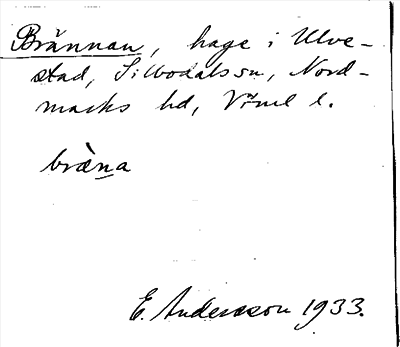 Brännan, hage i Ulve-
stad, Sillbodals sn, Nord-
marks hd, Vrml l.
bræ̀na
E. Andersson 1933.